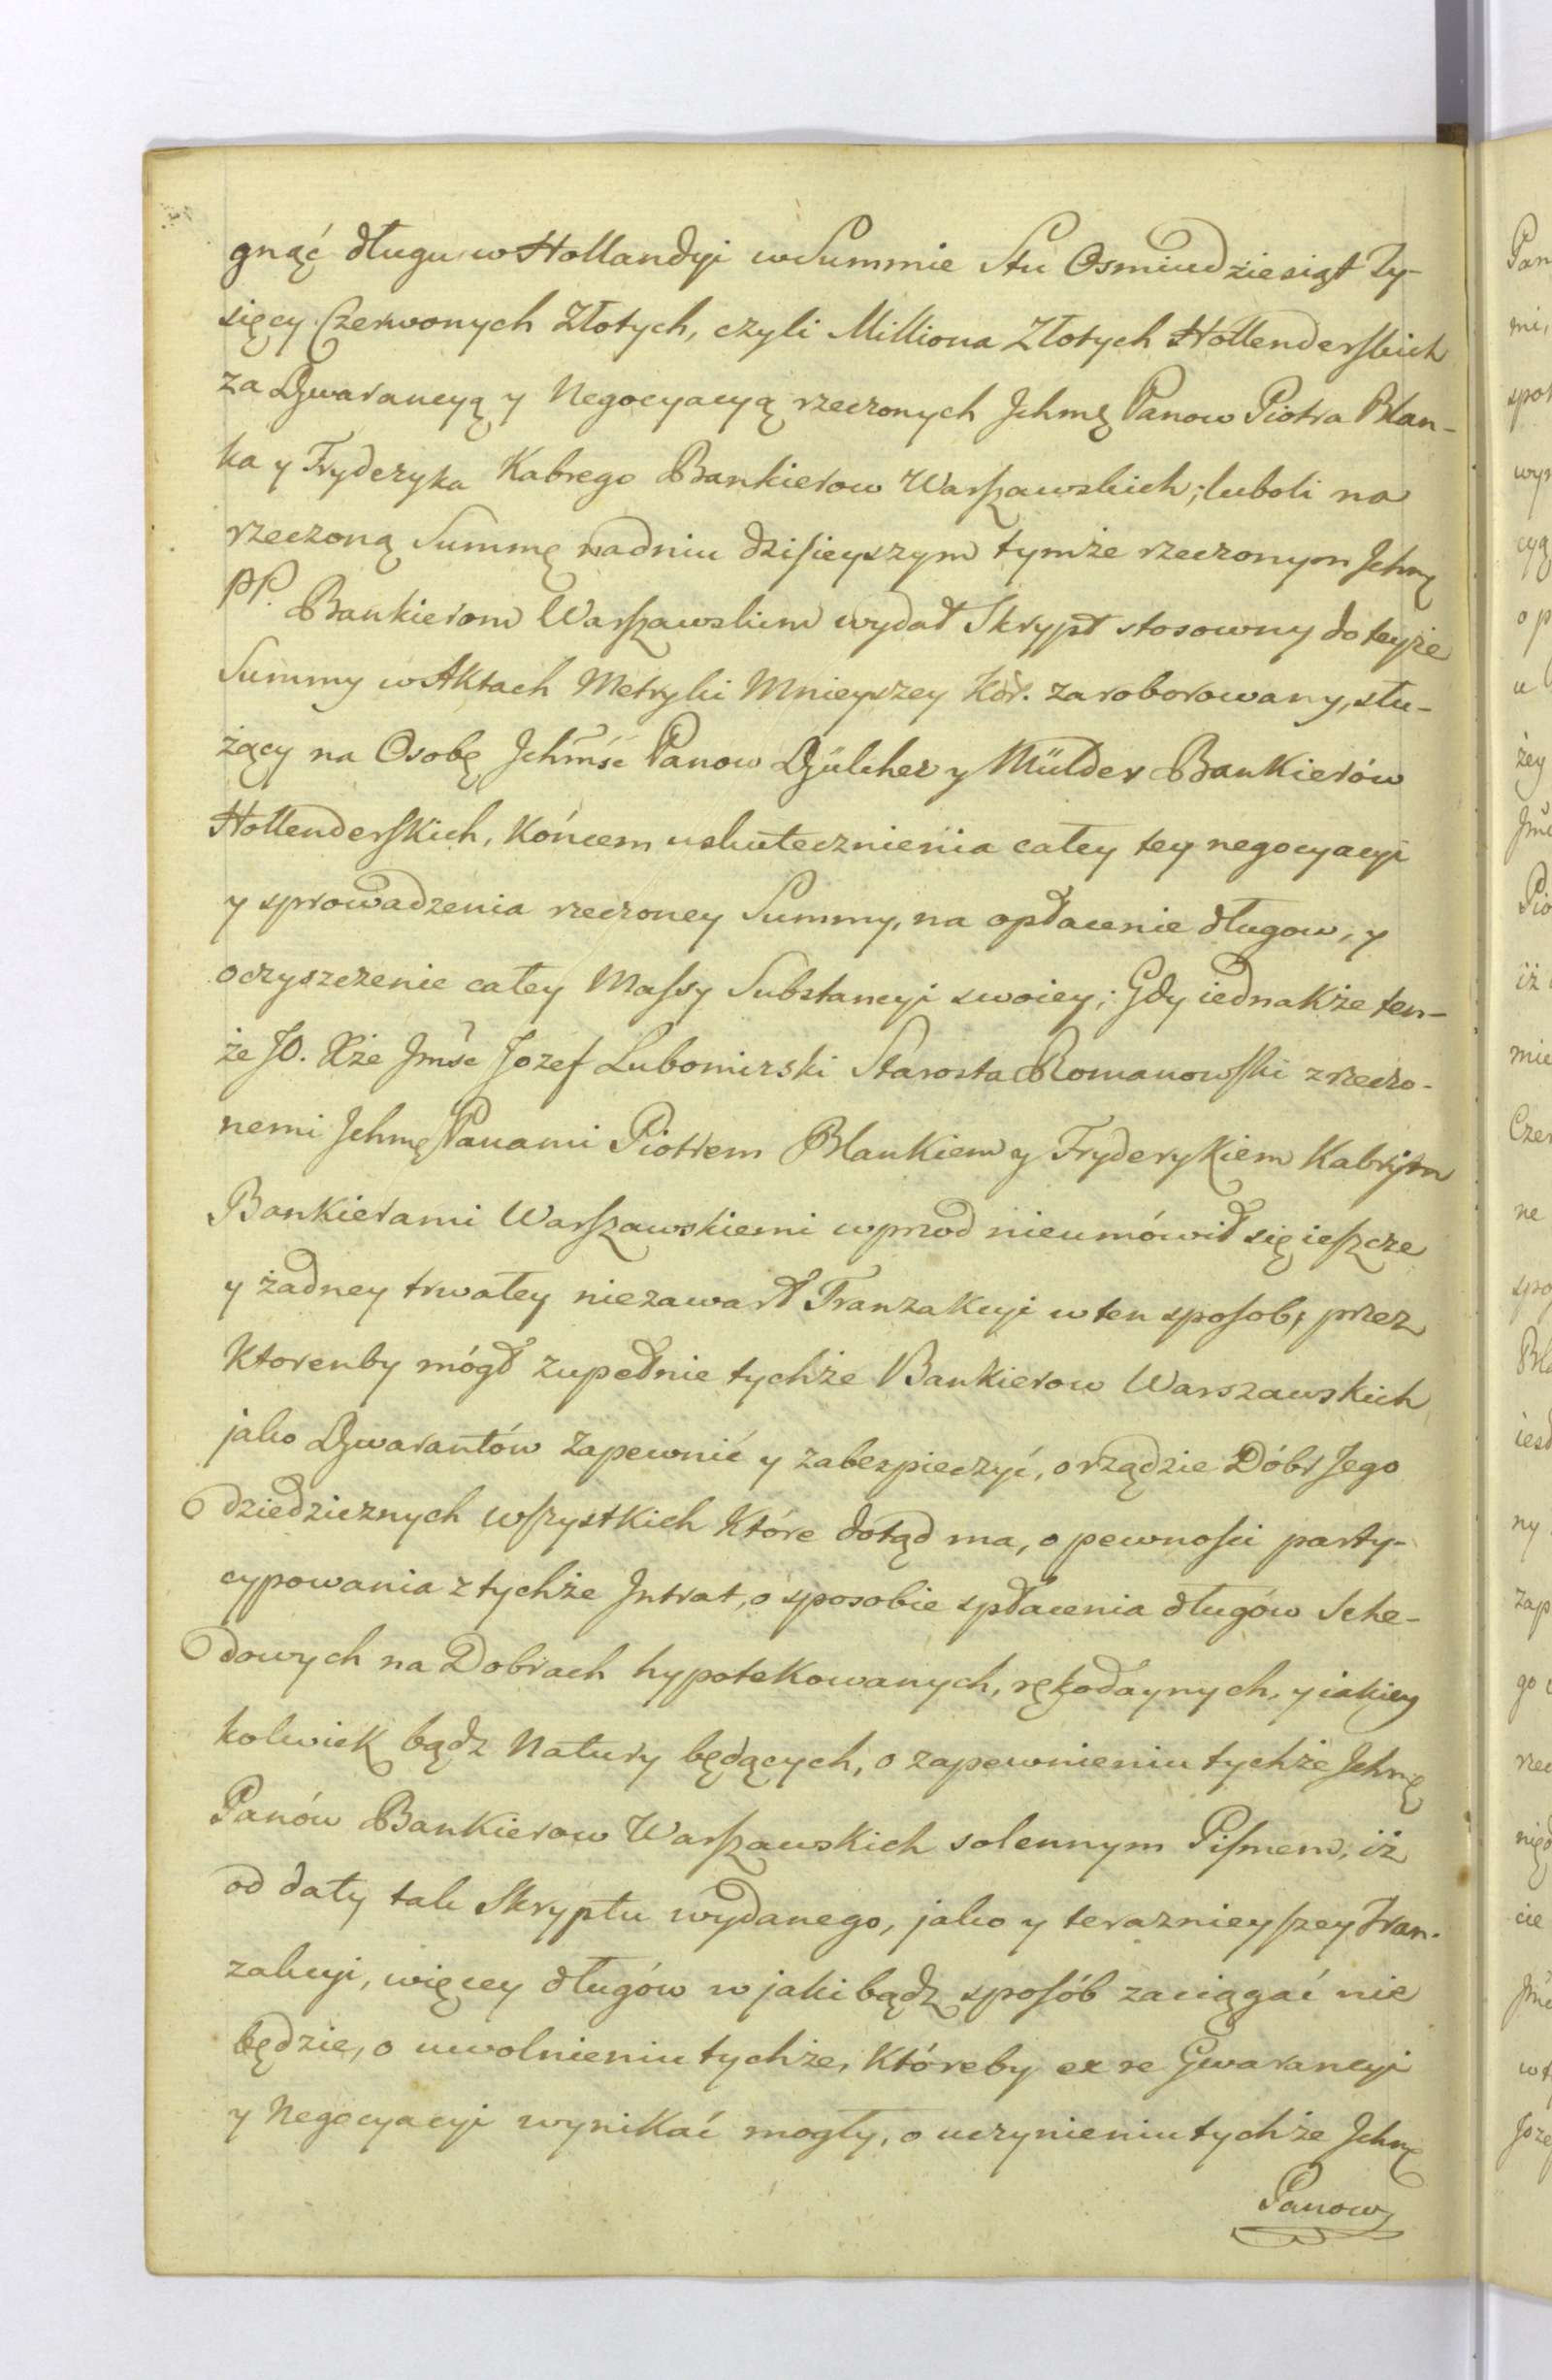 gnąć długu w Hollandyi w Summie Stu Osmiudziesiąt Ty-
sięcy Czerwonych Złotych, czyli Milliona Złotych Hollenderskich
za Gwarancyą y Negocyacyą rzeczonych Jchmę Panow Piotra Blan-
ka y Fryderyka Kabrego Bankierow Warszawskich; luboli na
rzeczoną Summę nadniu dzisieyszym tymże rzeczonym Jchmę
PP. Bankierom Warszawskim wydał Skrypt stosowny do teyże
Summy w Aktach Metryki Mnieyszey Kor. zaroborowany, słu-
żący na Osobę Jchmść Panow Gülcher y Mülder Bankierów
Hollenderskich, końcem uskutecznienia całey tey negocyacyi
y sprowadzenia rzeczoney Summy, na opłacenie długow, y
oczyszczenie całey Massy Substancyi swoiey; Gdy iednakże ten-
że JO. Xże Jmść Jozef Lubomirski Starosta Romanowski z rzeczo-
nemi Jchmę Panami Piotrem Blankiem y Fryderykiem Kabrym
Bankierami Warszawskiemi wprzod nieumówił się ieszcze
y żadney trwałey niezawarł Tranzakcyi w ten sposob, przez
ktorenby mógł zupełnie tychże Bankierow Warszawskich
jako Gwarantów zapewnić y zabezpieczyć, o rządzie Dóbr Jego
dziedzicznych wszystkich które dotąd ma, o pewności party-
cypowania z tychże Jntrat, o sposobie spłacenia długów Sche-
dowych na Dobrach hypotekowanych, rękodaynych, y iakiey
kolwiek bądz Natury będących, o zapewnieniu tychże Jchmę
Panów Bankierow Warszawskich solennym Pismem, iż
od daty tak Skryptu wydanego, jako y teraznieyszey Tran-
zakcyi, więcey długów w jaki bądz sposób zaciągać nie
będzie, o uwolnieniu tychże, któreby ex re Gwarancyi
y Negocyacyi wynikać mogły, o uczynieniu tychże Jchmę
Panow